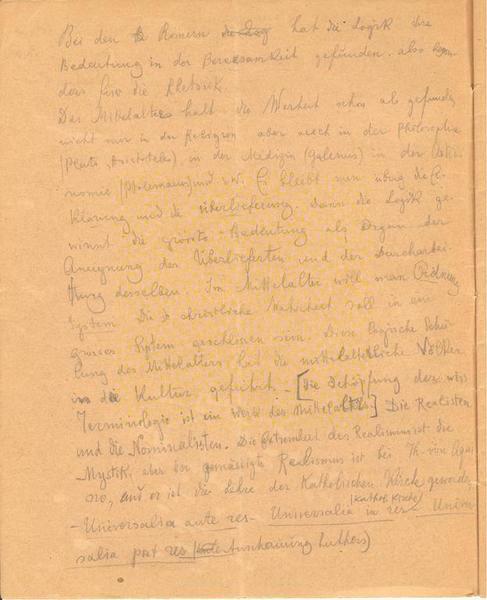 Bei den Römern hat die Logik ihre
Bedeutung in der Beredsamkeit gefunden. also beson-
ders für die Rhetorik
Das Mittelalter hält die Warheit schon als gefunden
nicht nur in der Religion aber auch in der Philosophie
(Plato, Aristoteles), in der Medizin (Galenus) in der Astro-
nomie (Ptolemaus) und s.w. Es bleibt nun übrig die Er-
klärung und die überlieferung. Dann die Logik ge-
winnt die grösste Bedeutung als Organ der
Aneignung des Überlieferten und der Durcharbei-
tung desselben. Im Mittelalter will man Ordnung
System. Die christliche Wahrheit soll in ein
grosses System geschlossen sein. Diese logische Schu-
lung des Mittelalters hat die mittelalterliche Völker
in die Kultur geführt. [Die Schöpfung der wiss
Terminologie ist ein Werk des Mittelalters.] Die Realisten
und die Nominalisten. Die Extremheit des Realismus ist die
Mystik, aber der gemässigte Realismus ist bei Th. von Aqui
no, und er ist die Lehre der Katholischen Kirche geworden
- Universalia ante res - Universalia in res (Kathol. Kirche) - Univer-
salia post res (Anschauung Luthers)